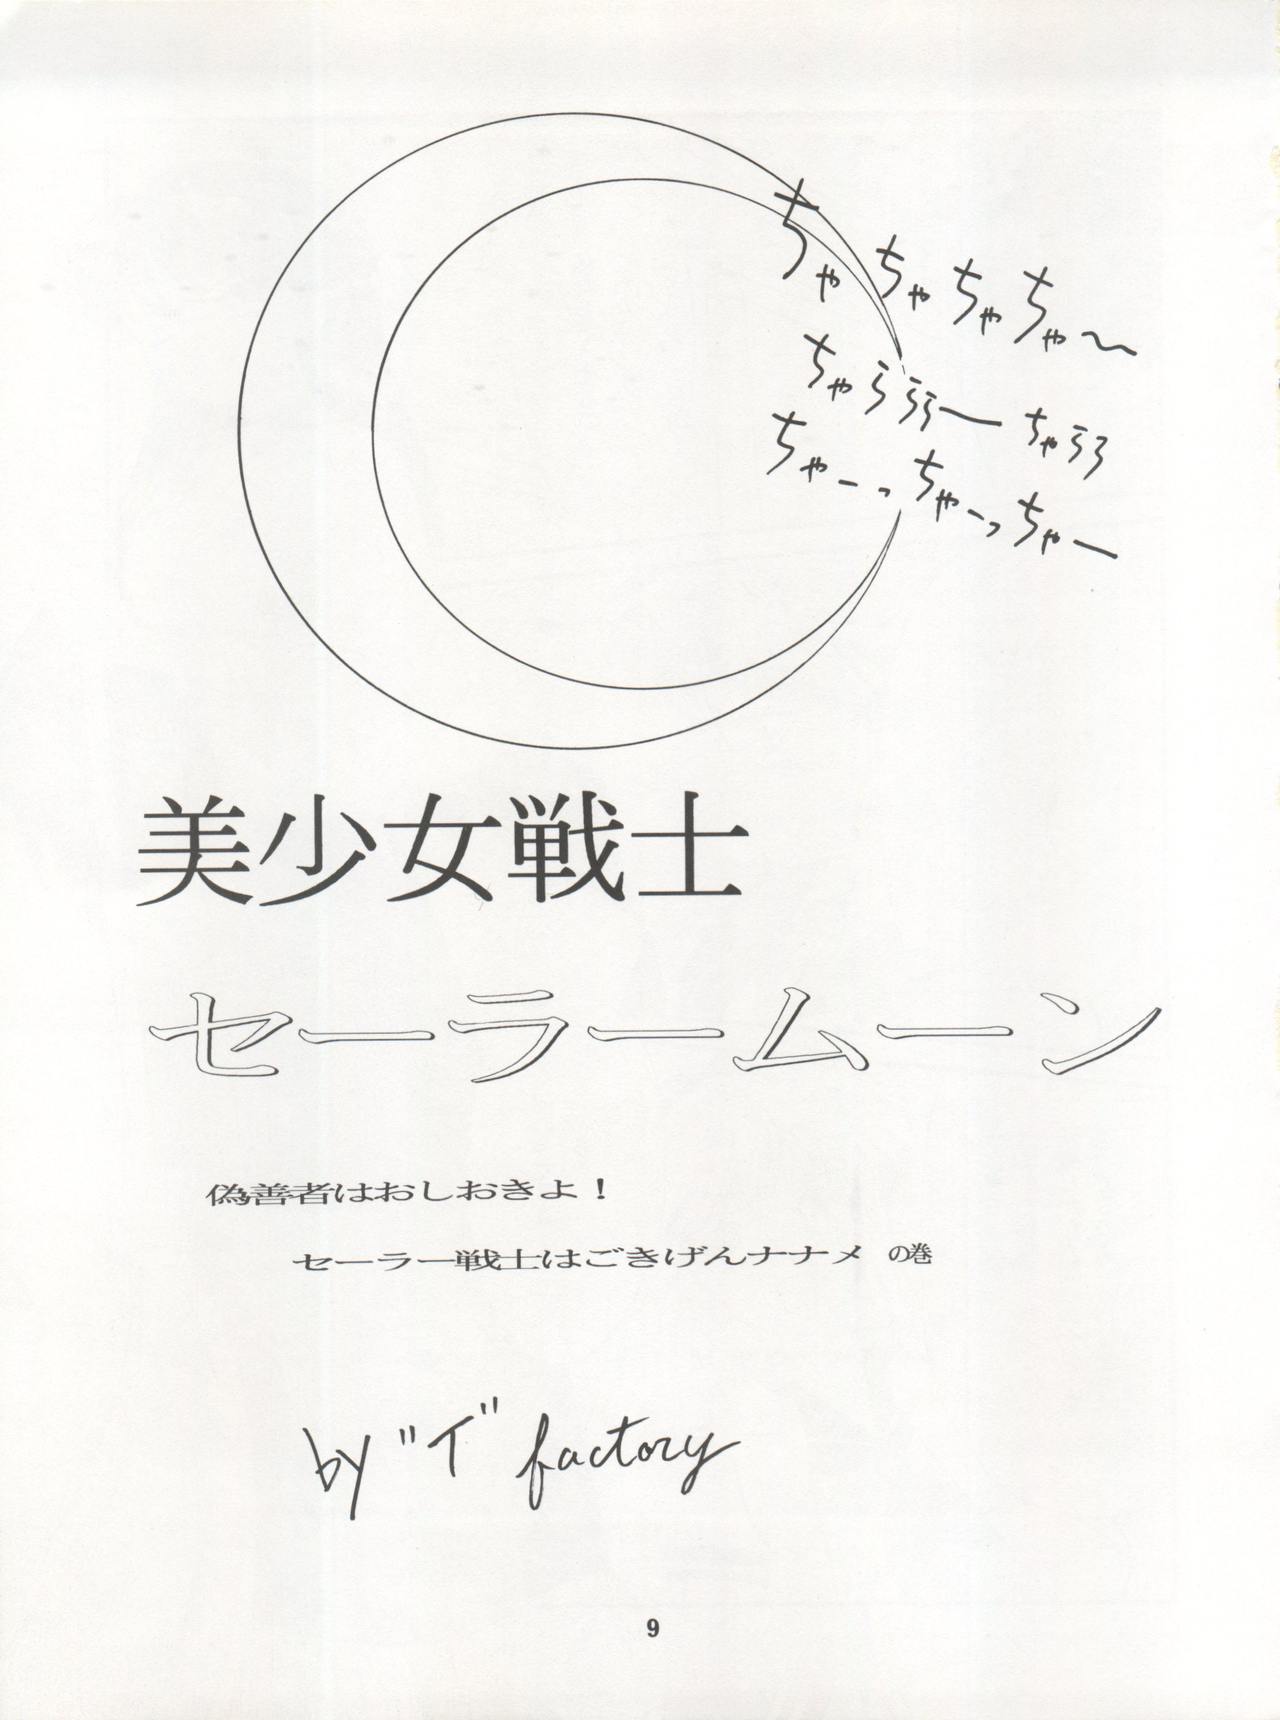 ちゃ ちゃちゃちゃ〜
ちゃららら― ちゃらら
ちゃーっちゃーっちゃー
美少女戦士
セーラームーン
偽善者はおしおきよ！
セーラー戦士はごきげんナナメ の巻
by "イ" factory
9